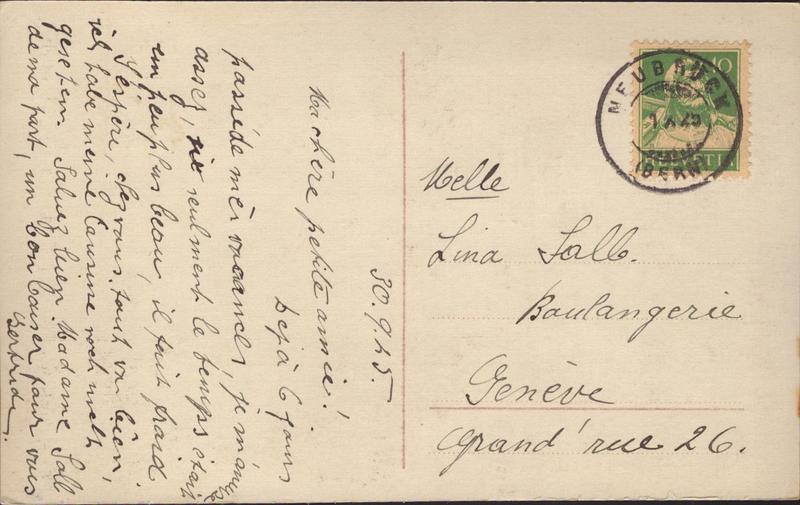 30.9.25.
Ma chère petite amie!
Déjà 6 jours
passé de mes vacances, je m'amuse
assez, si seulement le temps était
un peu plus beau, il fait froid.
J'espère, chez vous tout va bien,
ich habe meine Cousine noch nicht
gesehen. Saluez bien Madame Salb
de ma part, un bon baiser pour vous
Gertrude.
NEUBRÜCK
(BERN)
10
Melle
Lina Salb.
Boulangerie
Genève
Grand'rue 26.